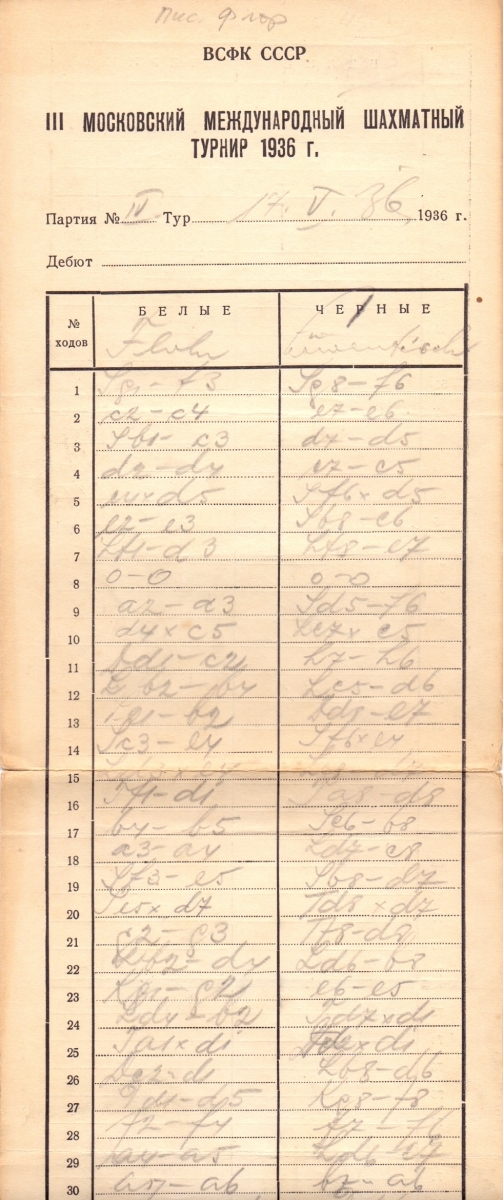 Пис. Флор
ВСФК СССР
III МОСКОВСКИЙ МЕЖДУНАРОДНЫЙ ШАХМАТНЫЙ
ТУРНИР 1936 г.
Партия № IV Тур 17. V. 36 1936 г.
Дебют
№ ходов БЕЛЫЕ ЧЕРНЫЕ
Flohr
1 Sg1-f3 Sg8-f6
2 c2-c4 e7-e6
3 Sb1-c3 d7-d5
4 d2-d4 c7-c5
5 c4xd5 Sf6xd5
6 e2-e3 Sb8-c6
7 Lf1-d3 Lf8-e7
8 0-0 0-0
9 a2-a3 Sd5-f6
10 d4xc5 Le7xc5
11 Dd1-c2 h7-h6
12 b2-b4 Lc5-d6
13 Lc1-b2 Dd8-e7
14 Sc3-e4 Sf6xe4
15
16 Tf1-d1 Ta8-d8
17 b4-b5 Sc6-b8
18 a3-a4 Ld7-c8
19 Sf3-e5 Sb8-d7
20 Se5xd7 Td8xd7
21 g2-g3 Tf8-d8
22 Lb2-d4 Ld6-b8
23 Kg1-g2 e6-e5
24 Ld4-b2 Td7xd1
25 Ta1xd1 Td8xd1
26 Dc2-d1 Lb8-d6
27 Dd1-d5 Kg8-f8
28 f2-f4 f7-f6
29 a4-a5 Ld6-c7
30 a5-a6 b7-a6